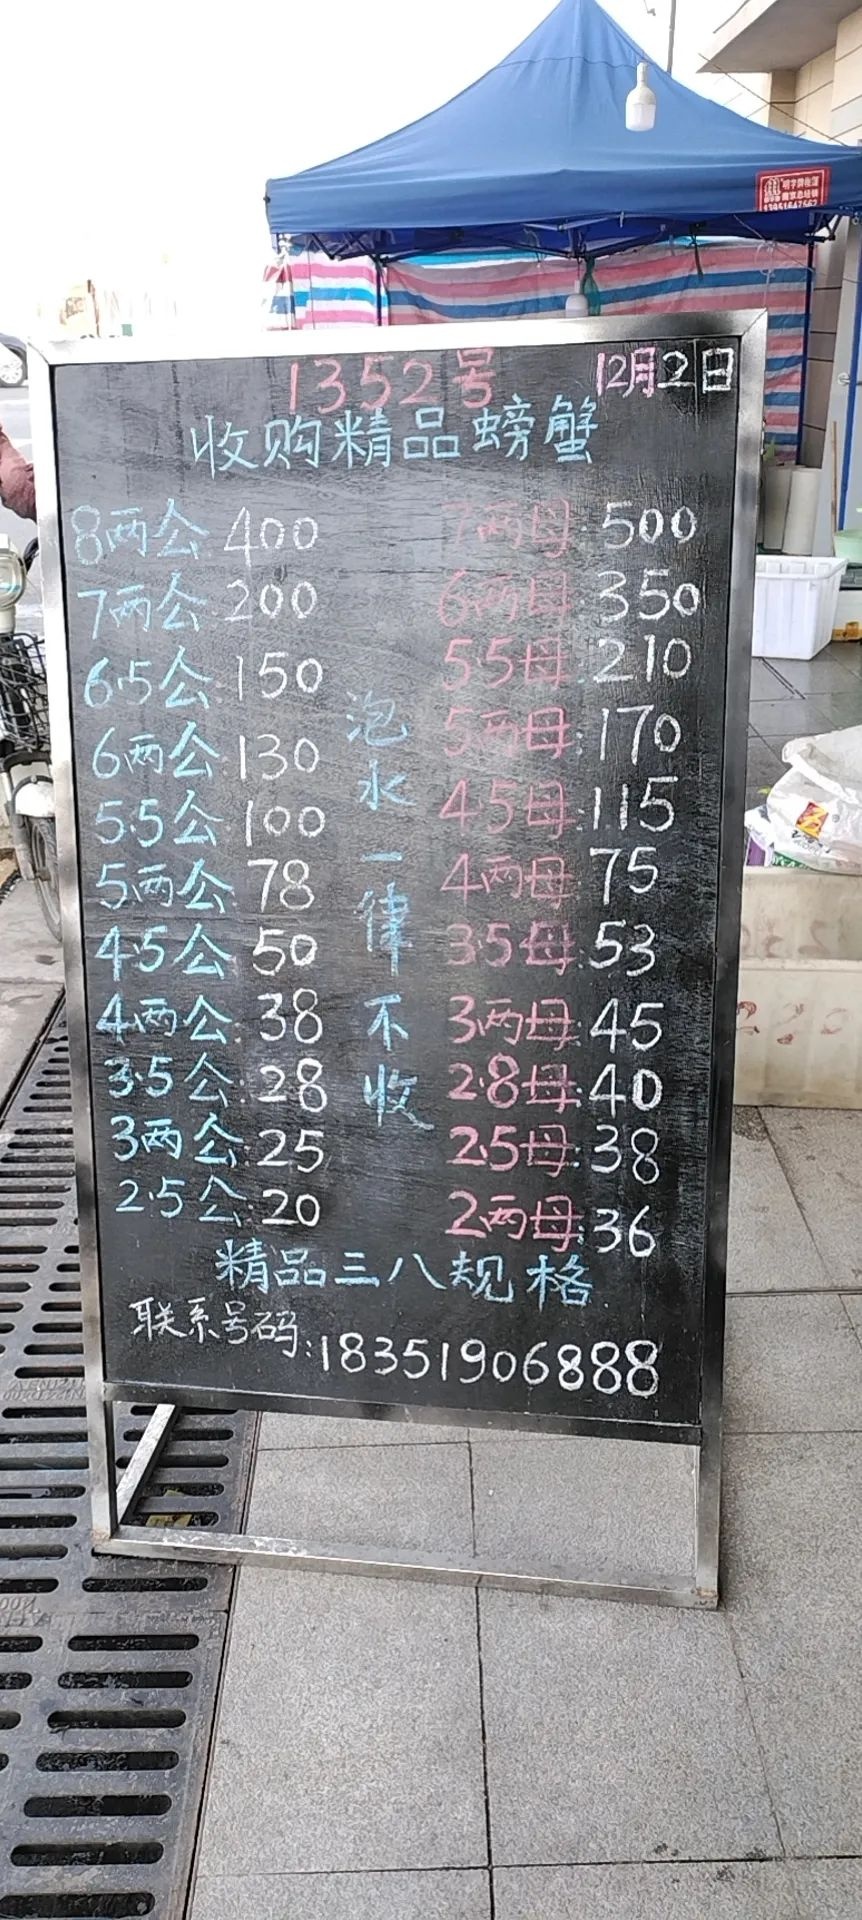 1352号 12月2日
收购精品螃蟹
8两公:400 7两母:500
7两公:200 6两母:350
6.5公:150 5.5母:210
6两公:130 5两母:170
5.5公:100 4.5母:115
5两公:78 4两母:75
4.5公:50 3.5母:53
4两公:38 3两母:45
3.5公:28 2.8母:40
3两公:25 2.5母:38
2.5公:20 2两母:36
泡水一律不收
精品三八规格
联系号码:18351906888
13951647562